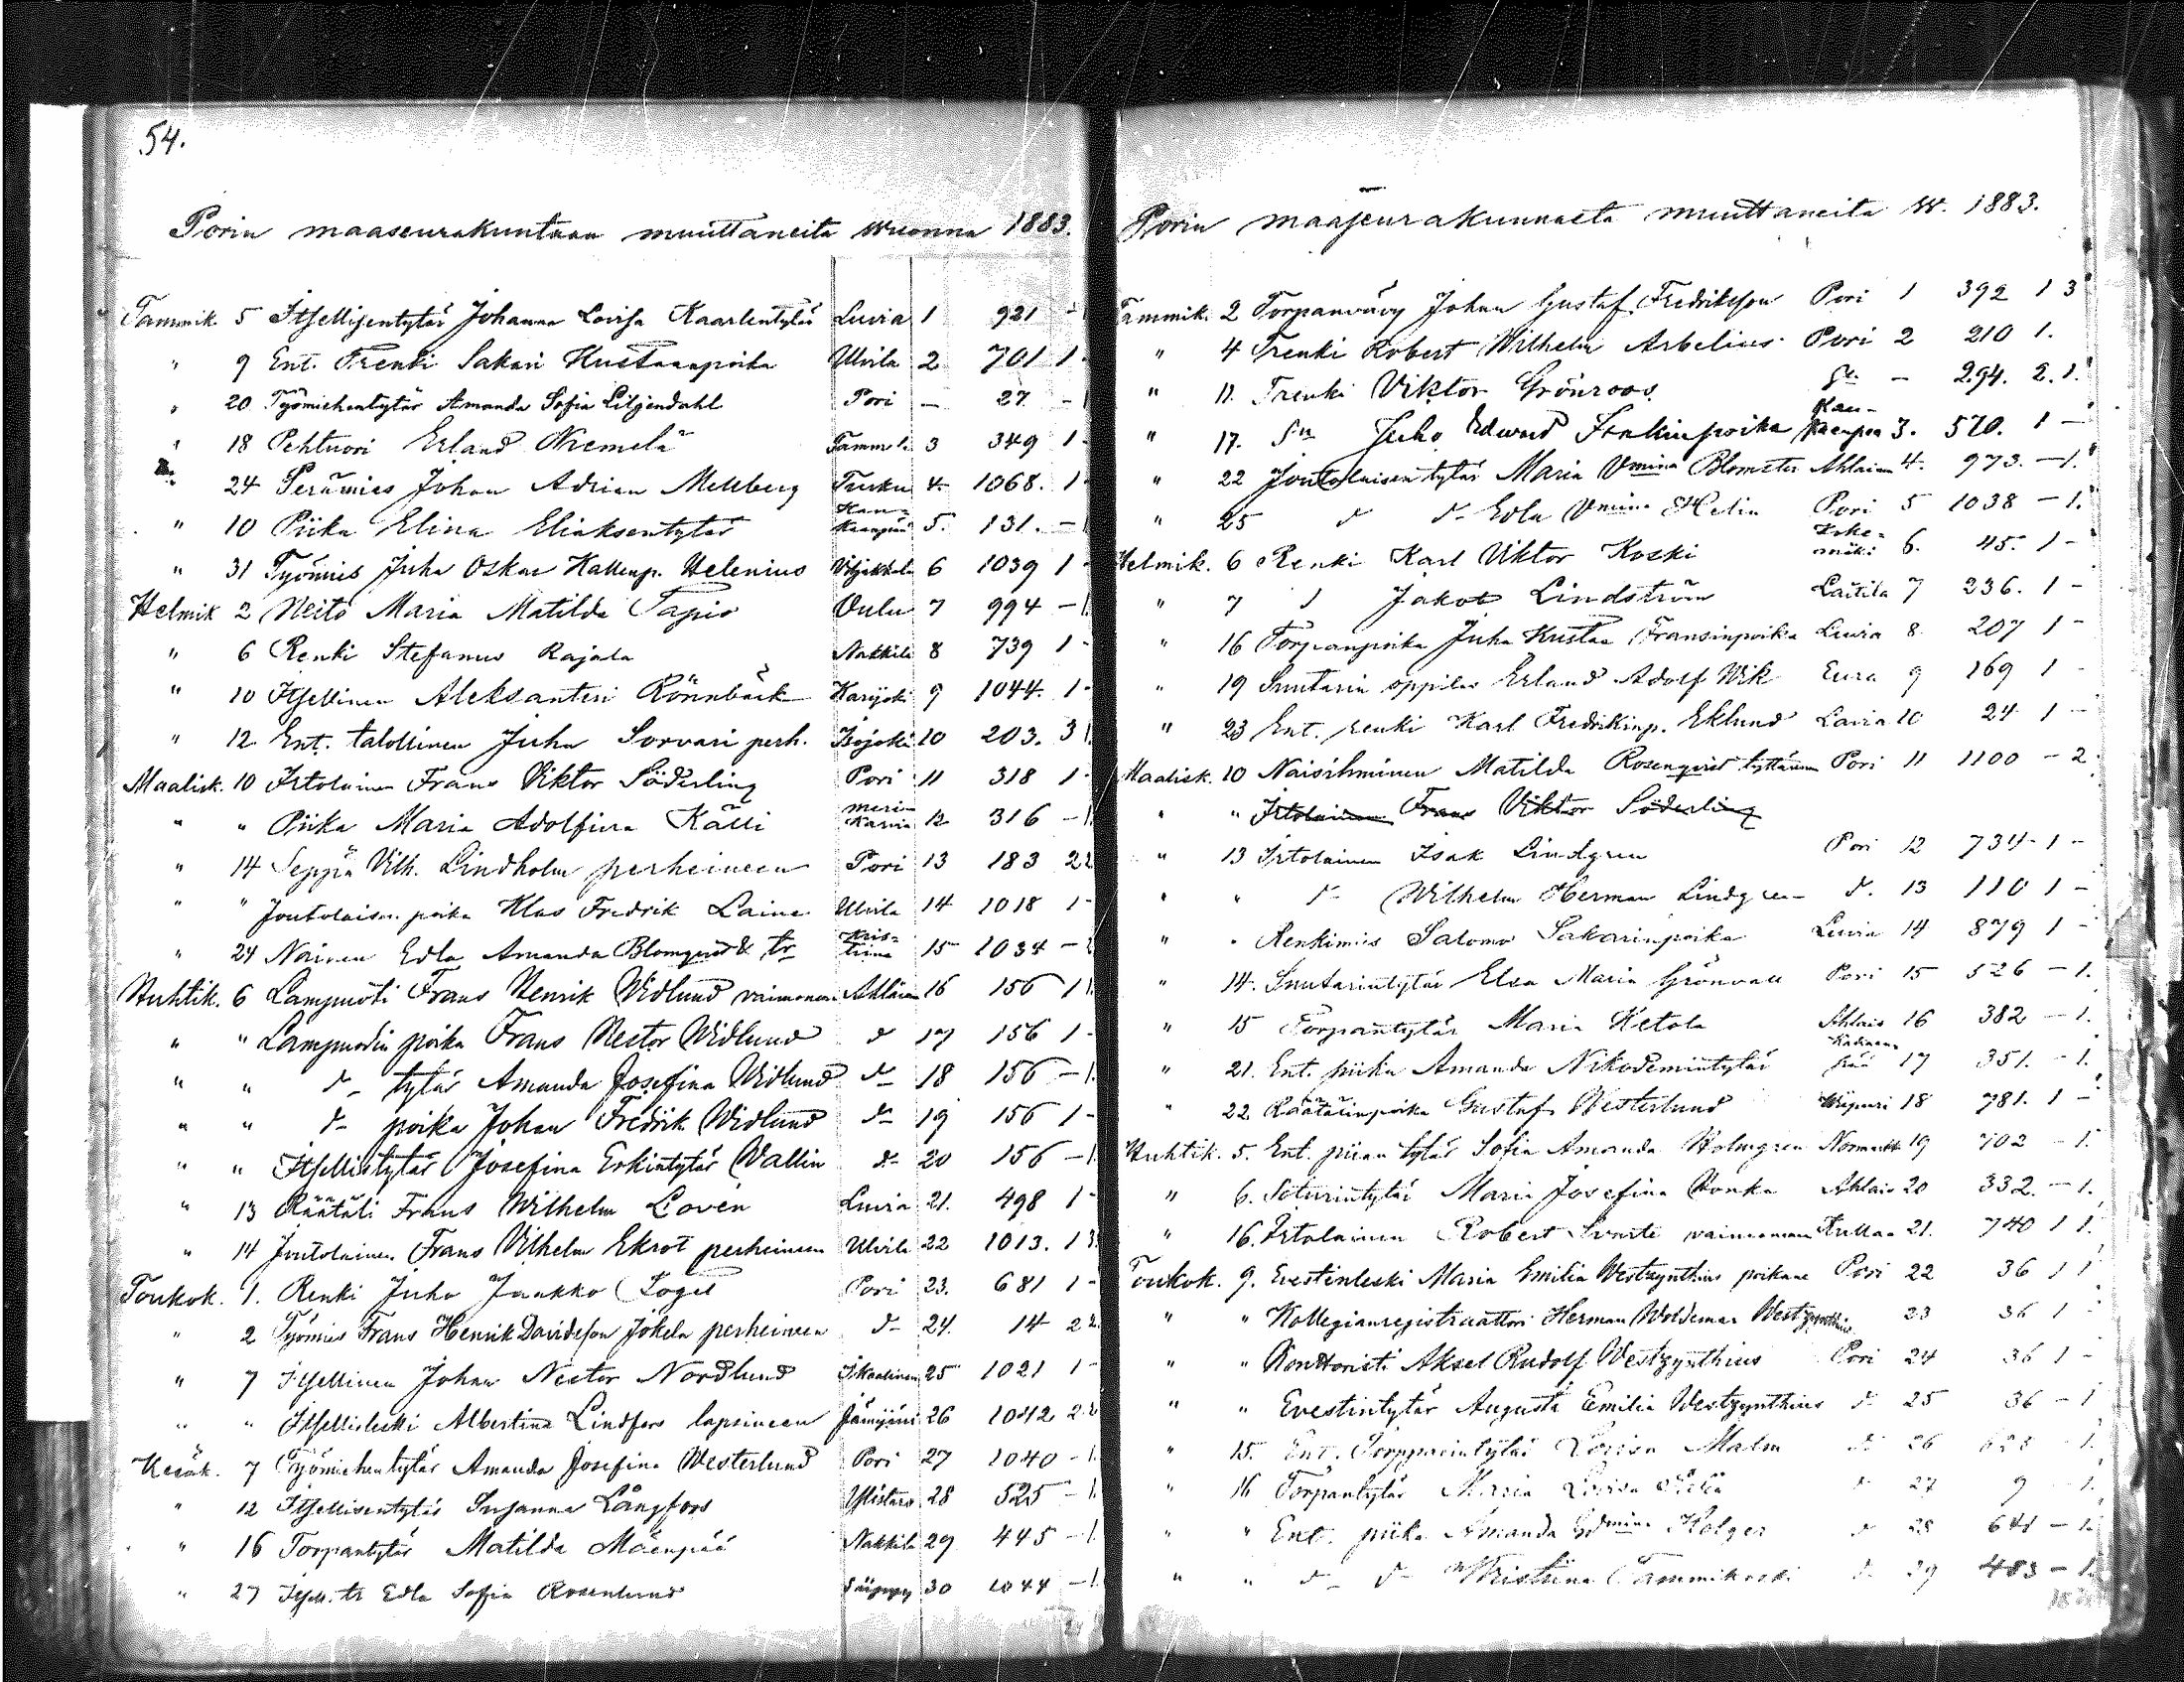 54.
Porin maaseurakuntaan muuttaneita wuonna 1883.
Tammik. 5 Itsellisentytär Johanna Lovisa Kaarlentytär Luvia 1 921 -
" 9 Ent. Trenki Sakari Kustaanpoika Ulvila 2 701 1 -
" 20 Työmiehentytär Amanda Sofia Liljendahl Pori — 27 - 1
" 18 Pehtuori Erland Niemelä 3 349 1 -
" 24 Perämies Johan Adrian Mellberg Turku 4. 1068. 1 -
" 10 Piika Elina Eliaksentytär Kankaanpää 5. 131. -
" 31 Työmies Juha Oskar Kallenp. Helenius Viljakkala 6 1039 1 -
Helmik 2 Neito Maria Matilda Tapio Oulu 7 994 - 1
" 6 Renki Stefanus Rajala Nakkila 8 739 1 -
" 10 Itsellinen Aleksanteri Rönnbäck Karijoki 9 1044. 1 -
" 12 Ent. talollinen Juha Sorvari perh. Isojoki 10 203. 3 1
Maalisk. 10 Irtolainen Frans Viktor Söderling Pori 11 318 1 -
" " Piika Maria Adolfiina Källi Merikarvia 12 316 - 1
" 14 Seppä Vilh. Lindholm perheineen Pori 13 183 2 2
" " Joutolaisen poika Klas Fredrik Laine Ulvila 14 1018 1 -
" 24 Nainen Edla Amanda Blomqvist & tr Kristiina 15 1034 -
Huhtik. 6 Lampuoti Frans Henrik Widlund vaimoneen Ahlainen 16 156 1 1
" " Lampuodin poika Frans Nestor Widlund d 17 156 1 -
" " d- tytär Amanda Josefina Widlund d- 18 156 - 1.
" " d- poika Johan Fredrik Widlund d- 19 156 1 -
" " Itsellistytär Josefina Erkintytär Wallin d- 20 156 - 1
" 13 Räätäli Frans Wilhelm Lovén Luvia 21. 498 1 -
" 14 Joutolainen Frans Vilhelm Ekrot perheineen Ulvila 22 1013. 1 3.
Toukok. 1. Renki Juho Jaakko Pori 23. 681 1 -
" 2 Työmies Frans Henrik Davidsson Jokela perheineen d- 24. 14 2 2.
" 7 Itsellinen Johan Nestor Nordlund Ikaalinen 25 1021 1 -
" " Itsellisleski Albertina Lindfors lapsineen Jämijärvi 26 1042 2
Kesäk. 7 Työmiehentytär Amanda Josefina Westerlund Pori 27 1040 - 1
" 12 Itsellisentytär Susanna Långfors Ylistaro 28 525 - 1
" 16 Torpantytär Matilda Mäenpää Nakkila 29 445 - 1.
" 27 Itsell. tr Edla Sofia Rosenlund 30 1044 - 1.
Porin maaseurakunnasta muuttaneita w. 1883.
Tammik. 2 Torpanvävy Johan Gustaf Fredriksson Pori 1 392 1 3
" 4 Trenki Robert Wilhelm Arbelius Pori 2 210 1.
" 11. Trenki Viktor Grönroos — 294. 2. 1.
" 17. Juho Edward Kankaanpää 3. 570. 1 -
" 22 Joutolaisen tytär Maria Vmina Blomster Ahlainen 4. 973. - 1.
" 25 d d- Edla Vmina Helin Pori 5 1038 - 1.
Helmik. 6 Renki Karl Viktor Koski 6. 45. 1 -
" 7 Jakob Lindström Laitila 7 236. 1 -
" 16 Torpanpoika Juha Kustaa Fransinpoika Luvia 8 207 1 -
" 19 Suutarin oppilas Erland Adolf Wik Eura 9 169 1 -
" 23 Ent. renki Karl Fredrikinp. Eklund Lavia 10 24 1 -
Maalisk. 10 Naisihminen Matilda Rosenqvist tyttärineen Pori 11 1100 - 2
" " Irtolainen Frans Viktor Söderling
" 13 Irtolainen Isak Lindgren Pori 12 734 - 1 -
" " d- Wilhelm Herman Lindgren d. 13 110 1 -
" " Renkimies Salomo Sakarinpoika Luvia 14 879 1 -
" 14. Suutarintytär Elsa Maria Grönvall Pori 15 526 - 1.
" 15 Torpantytär Maria Ketola Ahlais 16 382 - 1.
" 21. Ent. piika Amanda Nikodemintytär 17 351. - 1.
" 22 Räätälinpoika Gustaf Westerlund Wiipuri 18 781. 1 -
Huhtik. 5. Ent. piian tytär Sofia Amanda Holmgren Normarkk 19 702 - 1.
" 6. Soturintytär Maria Josefina Honka Ahlais 20 332. - 1.
" 16. Irtolainen Robert Svarte vaimoneen Kullaa 21. 740 1 1.
Toukok. 9. Everstinleski Maria Emilia Westzynthius poikane Pori 22 36 1 1
" " Kollegianregistraattori Herman Woldemar Westzynthius 23 36 1 -
" " Konttoristi Aksel Rudolf Westzynthius Pori 24 36 1 -
" " Everstintytär Augusta Emilia Westzynthius d. 25 36 - 1
" 15. Ent. Torpparintytär Lovisa Malm d. 26 - 1.
" 16 Torpantytär Maria Lovisa d 27 9 - 1.
" " Ent. piika Amanda Edmina Holger d 28 641 - 1.
" " d- d- Kristiina Tammikoski d. 29 483 - 1.